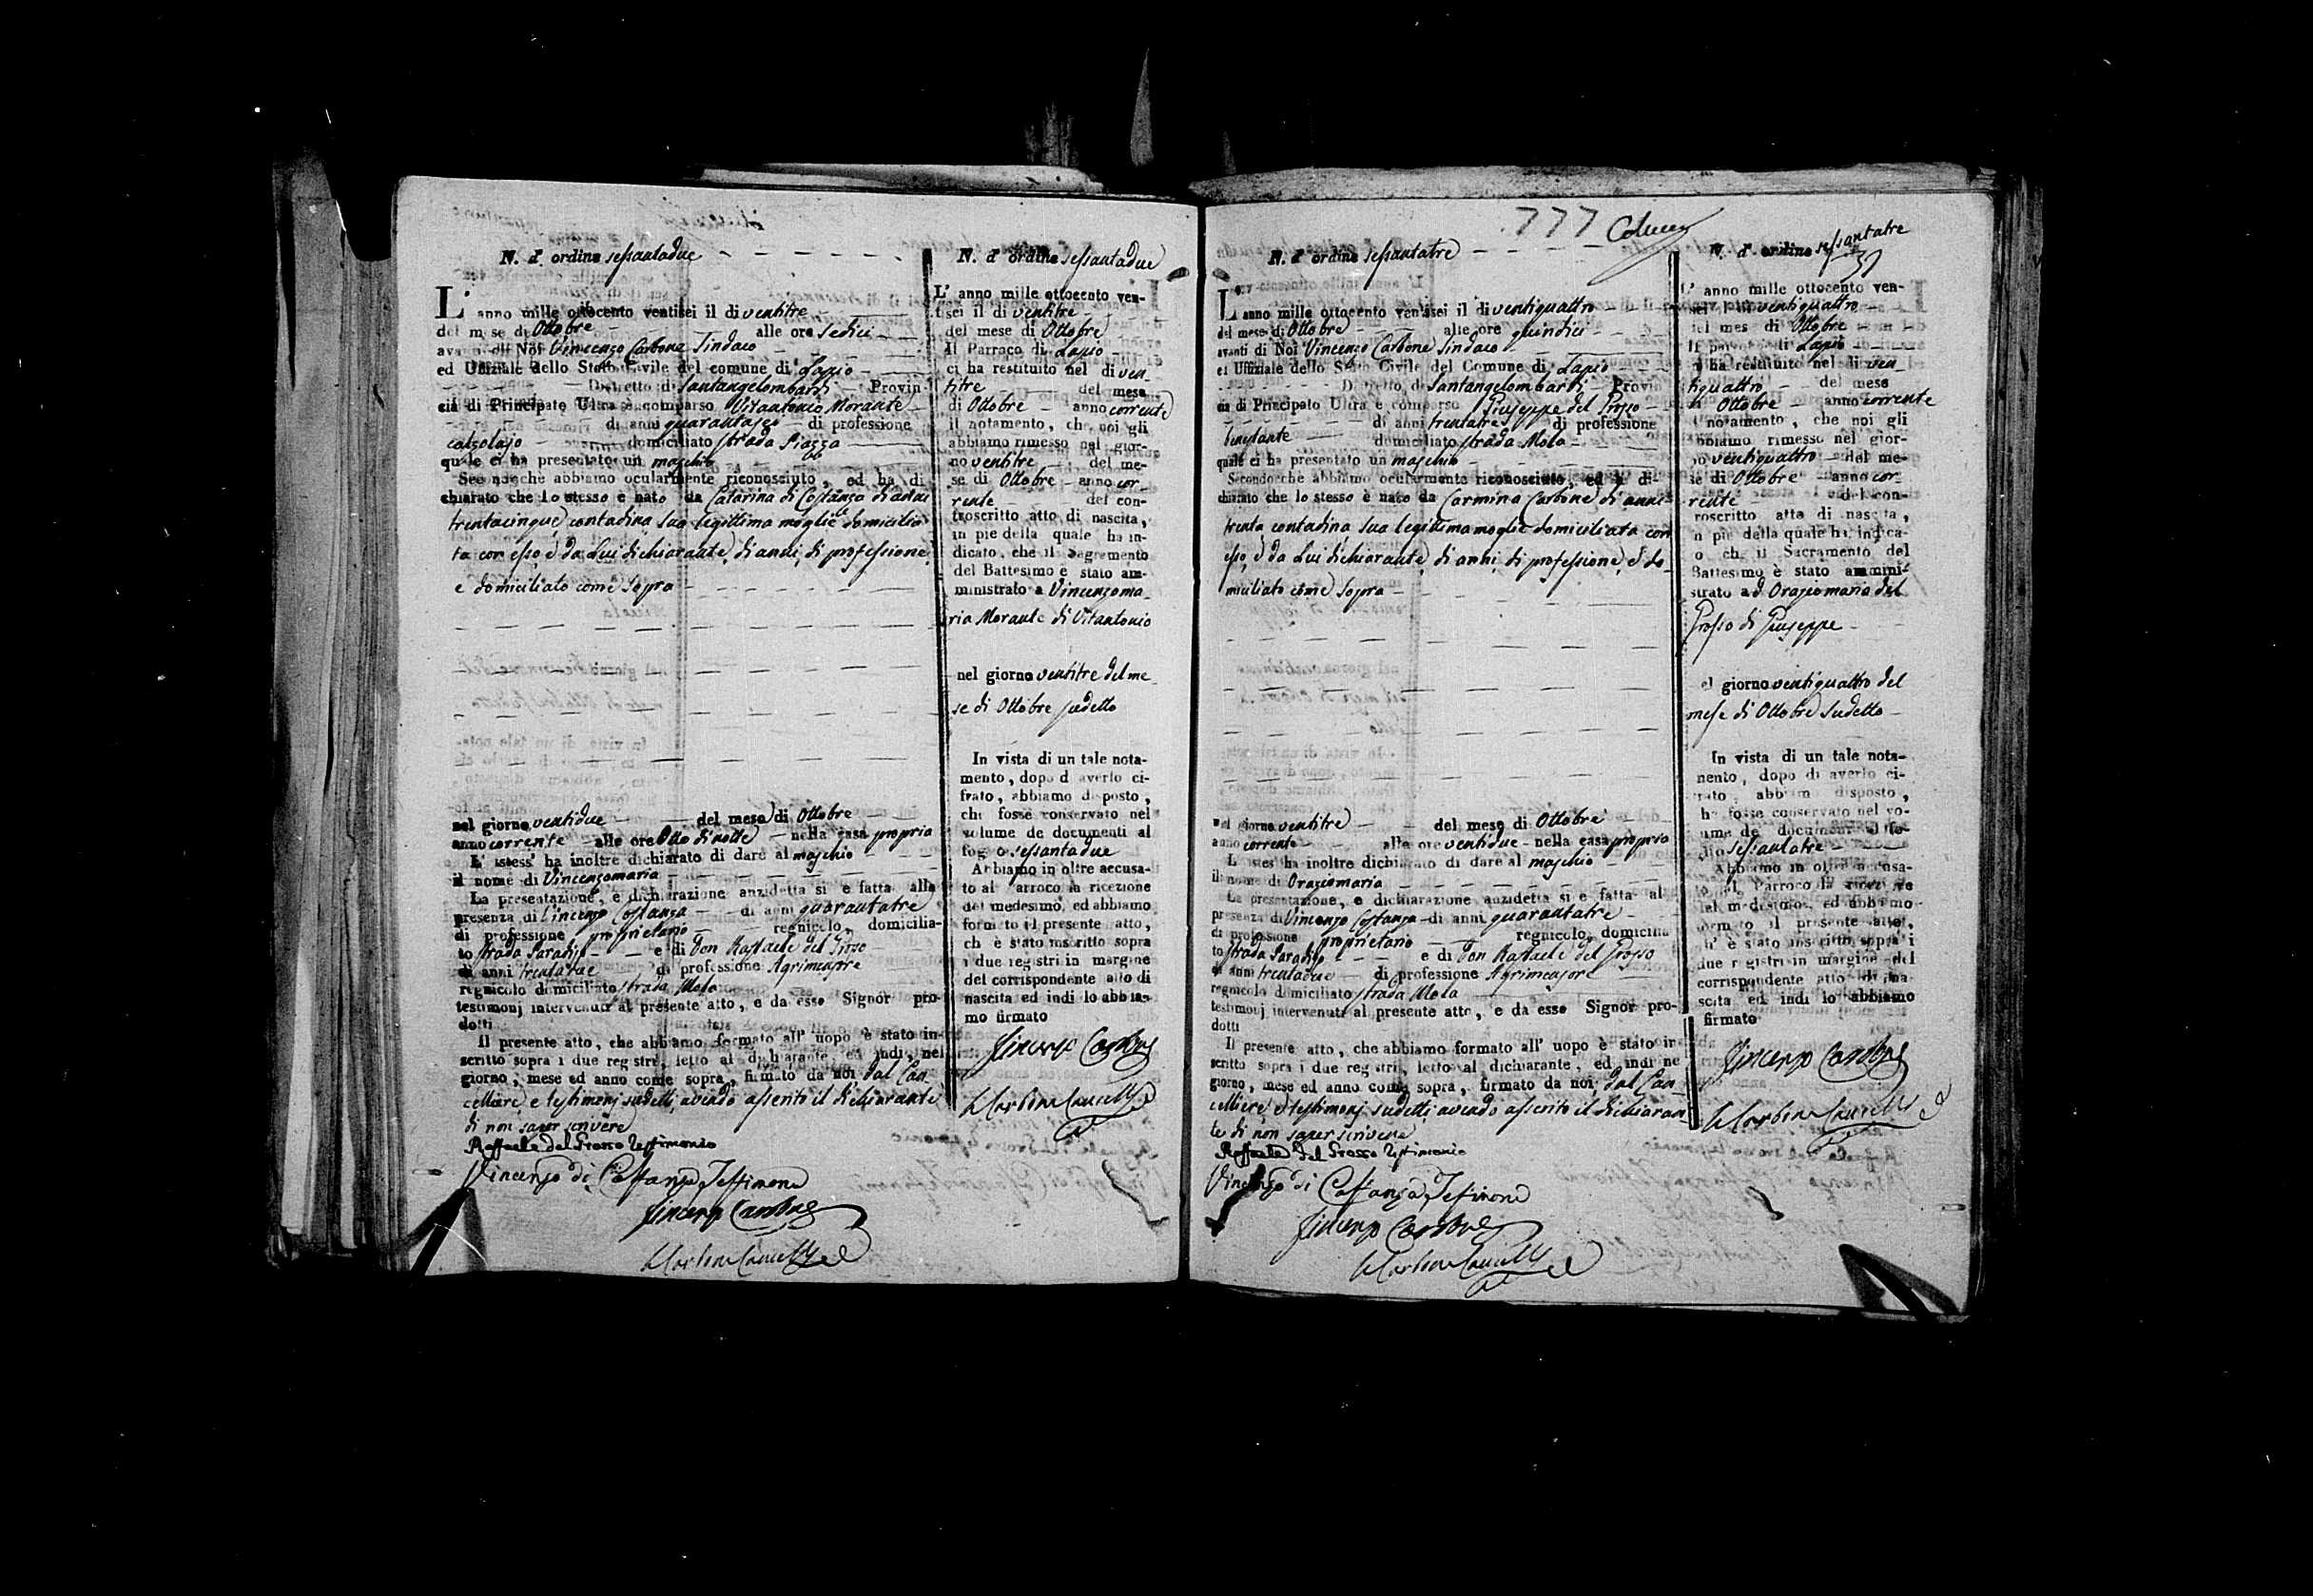 N. d' ordine sessantadue
L' anno mille ottocento ventisei il di ventitre
del mese di Ottobre alle ore Sedici
avanti di Noi Vincenzo Carbone Sindaco
ed Uffiziale dello Stato Civile del comune di Lapio
Distretto di Santangelombardi Provin
cia di Principato Ultra è comparso Vitantonio Morante
di anni quarantasei di professione
calzolajo domiciliato strada Piazza
quale ci ha presentato un maschio
Secondochè abbiamo ocularmente riconosciuto, ed ha di
chiarato che lo stesso è nato da Catarina di Costanzo di anni
trentacinque, contadina, sua legittima moglie domicilia
ta con esso, e da Lui dichiarante, di anni, di professione,
e domiciliato come sopra
nel giorno ventidue del mese di Ottobre
anno corrente alle ore Otto di notte nella casa propria
L' istess' ha inoltre dichiarato di dare al maschio
il nome di Vincenzomaria
La presentazione, e dichiarazione anzidetta si è fatta alla
presenza di Vincenzo Costanza di anni quarantatre
di professione proprietario regnicolo, domicilia-
to strada Paradiso e di Don Raffaele del Grosso
di anni trentadue di professione Agrimensore
regnicolo domiciliato strada Mola
testimonj intervenuti al presente atto, e da esso Signor pro-
dotti
Il presente atto, che abbiamo formato all' uopo è stato in-
scritto sopra i due registri, letto al dichiarante, ed indi, nel
giorno, mese ed anno come sopra, firmato da noi dal Can
celliere, e testimonj sudetti, avendo asserito il dichiarante
di non saper scrivere
Raffaele del Grosso Testimonio
Vincenzo di Costanza Testimone
Vincenzo Carbone
N. d' ordine sessantadue
L' anno mille ottocento ven-
tisei il di ventitre
del mese di Ottobre
Il Parroco di Lapio
ci ha restituito nel di ven
titre del mese
di Ottobre anno corrente
il notamento, che noi gli
abbiamo rimesso nel gior-
no ventitre del me-
se di Ottobre anno cor
rente del con-
troscritto atto di nascita,
in piè della quale ha in-
dicato, che il Sagremento
del Battesimo è stato am-
ministrato a Vincenzoma
ria Morante di Vitantonio
nel giorno ventitre del me
se di Ottobre sudetto
In vista di un tale nota-
mento, dopo d averlo ci-
frato, abbiamo disposto,
che fosse conservato nel
volume de documenti al
foglio sessantadue
Abbiamo in oltre accusa-
to al Parroco la ricezione
del medesimo, ed abbiamo
formato il presente atto,
ch è stato inscritto sopra
i due registri in margine
del corrispondente atto di
nascita ed indi lo abbia-
mo firmato
Vincenzo Carbone
777
N. d' ordine sessantatre
L' anno mille ottocento ventisei il di ventiquattro
del mese di Ottobre alle ore quindici
avanti di Noi Vincenzo Carbone Sindaco
ed Uffiziale dello Stato Civile del Comune di Lapio
Distretto di Santangelombardi Provin
cia di Principato Ultra è comparso Giuseppe del Grosso
di anni trentatre di professione
domiciliato strada Mola
quale ci ha presentato un maschio
Secondochè abbiamo ocularmente riconosciuto, ed ha di-
chiarato che lo stesso è nato da Carmina Carbone di anni
trenta contadina, sua legittima moglie domiciliata con
esso, e da Lui dichiarante, di anni, di professione, e do
miciliato come sopra
nel giorno ventitre del mese di Ottobre
anno corrente alle ore ventidue nella casa propria
L istes' ha inoltre dichiarato di dare al maschio
il nome di Oraziomaria
La presentazione, e dichiarazione anzidetta si è fatta al
presenza di Vincenzo Costanza di anni quarantatre
di professione proprietario regnicolo, domicilia
to strada Paradiso e di Don Raffaele del Grosso
di anni trentadue di professione Agrimensore
regnicolo domiciliato strada Mola
testimonj intervenuti al presente atto, e da esso Signor pro-
dotti
Il presente atto, che abbiamo formato all' uopo è stato in
scritto sopra i due registri, letto al dichiarante, ed indi ne
giorno, mese ed anno come sopra, firmato da noi, dal Can
celliere, e testimonj sudetti, avendo asserito il dichiaran
te di non saper scrivere
Raffaele del Grosso Testimonio
Vincenzo di Costanza Testimone
Vincenzo Carbone
N. d' ordine sessantatre
L' anno mille ottocento ven-
tisei il di ventiquattro
del mes di Ottobre
Il parroco di Lapio
ci ha restituito nel di ven
tiquattro del mese
di Ottobre anno corrente
il notamento, che noi gli
abbiamo rimesso nel gior-
no ventiquattro del me-
se di Ottobre anno cor
rente del con-
troscritto atto di nascita,
in piè della quale ha indica-
to che il Sacramento del
Battesimo è stato ammini-
strato ad Oraziomaria del
Grosso di Giuseppe
nel giorno ventiquattro del
mese di Ottobre sudetto
In vista di un tale nota-
mento, dopo di averlo ci-
frato, abbiam disposto,
che fosse conservato nel vo-
lume de documenti al fo-
glio sessantatre
Abbiamo in oltre accusa-
to al Parroco la ricezione
del medesimo, ed abbiamo
formato il presente atto,
ch' è stato inscritto sopra i
due registri in margine del
corrispondente atto di na-
scita ed indi lo abbiamo
firmato
Vincenzo Carbone